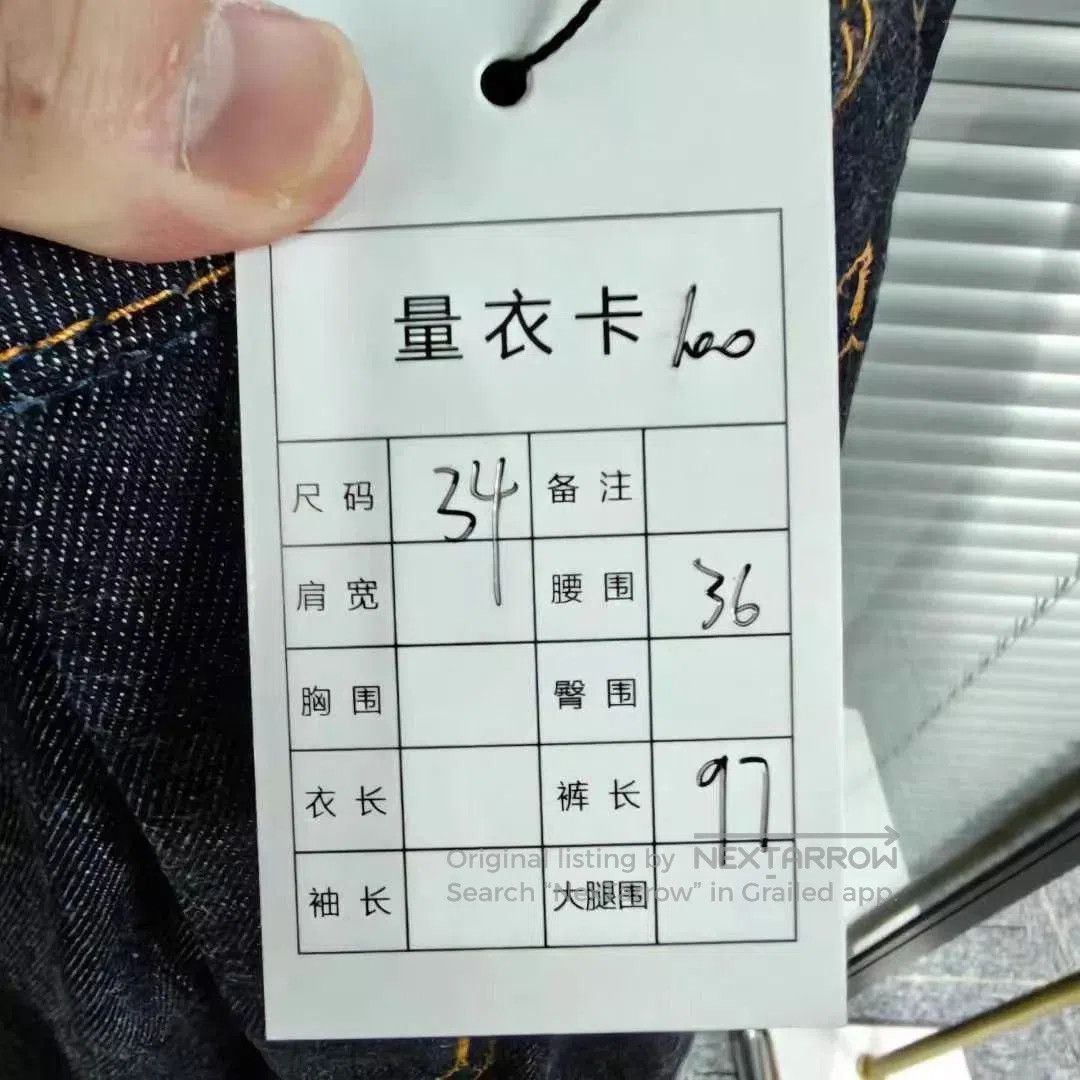 量衣卡 100
尺码 34 备注
肩宽 腰围 36
胸围 臀围
衣长 裤长 97
袖长 大腿围
Original listing by NEXTARROW
Search "NextArrow" in Grailed app.